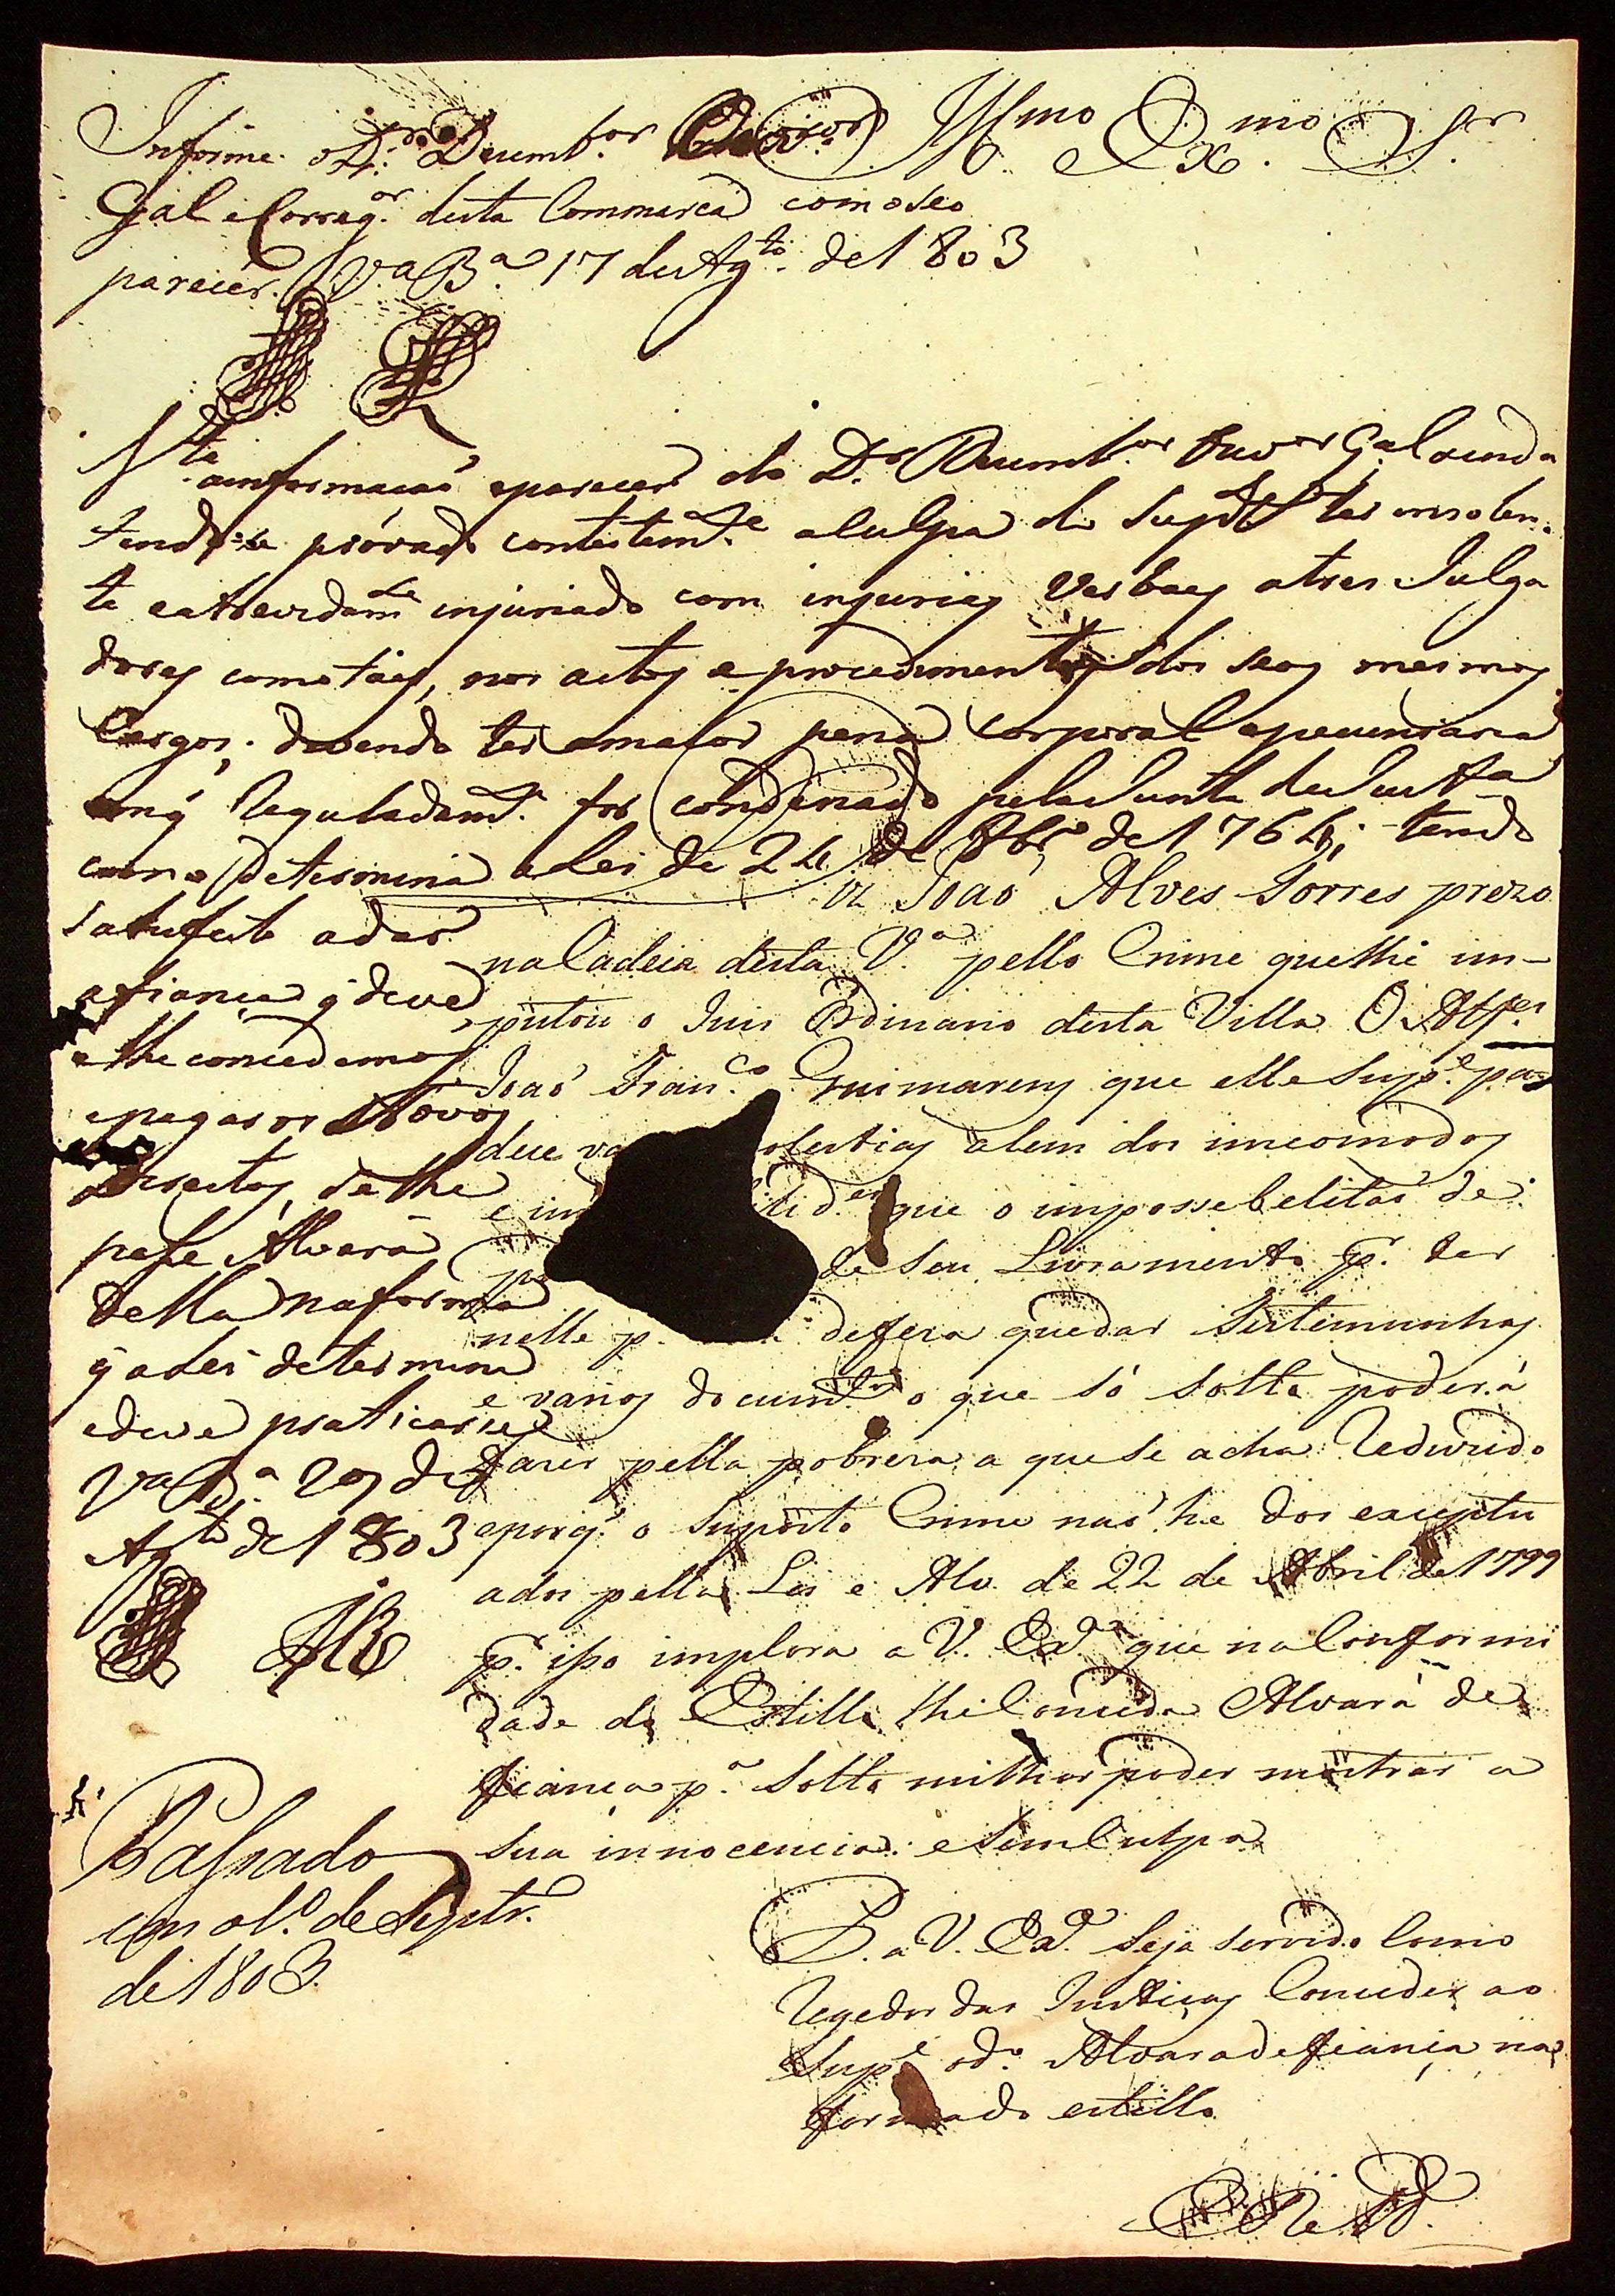 Informe o D.or Dezemb.or Ouv.or
Gal e Correg.or desta Commarca com o seo
parecer. V.a B.a 17 de Ag.to de 1803
Ill.mo e Ex.mo S.r
V.ta a informacaó e parecer do D.or Dezemb.or Ouv.or G.al ainda
tendo-se próvado contestem.te a culpa do Sup.te de ter insolen-
te e atrevidam.te injuriado com injurias Verbaes a tres Julga
dores como táes, nos actos e procedimentos dos seos mesmos
Cargos; devendo ter a maior pena corporal e pecuniaria
em q' reguladam.te for condenado pela Junta de Just.a
como determina a Lei de 24 de 8br.o de 1764; tendo
satisfeito a dar
a fiança q' deve
e lhe concedemos
e pagar os Nóvos
direitos, se lhe
passe Alvará
della na forma
q' a Lei determina
e deve praticarse
V.a B.a 29 de
Ag.to de 1803
Passado
em o 1.o de Septr.o
de 1803.
Diz Joaó Alves Torres prezo
na Cadeia desta V.a pello Crime que lhe im-
putou o Juis Ordinario desta Villa O Alf.es
Joaó Fran.co Guimarens que elle Sup.e pa
dece va olestias alem dos incomodos
e in que o imposebelitaó de
de seu Livramento p.r ter
nelle p. defeza que dar testemunhas
e varios docum.tos o que só solto poderá
fazer pella pobreza a que se acha reduzido
e porq' o suposto Crime naó he dos exceptu
ados pella Lei e Alv. de 22 de Abril de 1799
p.r isso implora a V. Ex.a que na Conformi
dade do Estillo lhe Conceda Alvará de
fiança p.a solto milhor poder mostrar a
sua innocencia: e sem Culpa
P. a V. Ex.a seja servido Como
Regedor das Justiças Conceder ao
Sup.e o d.o Alvara de fiança na
forma do estillo
E R M.